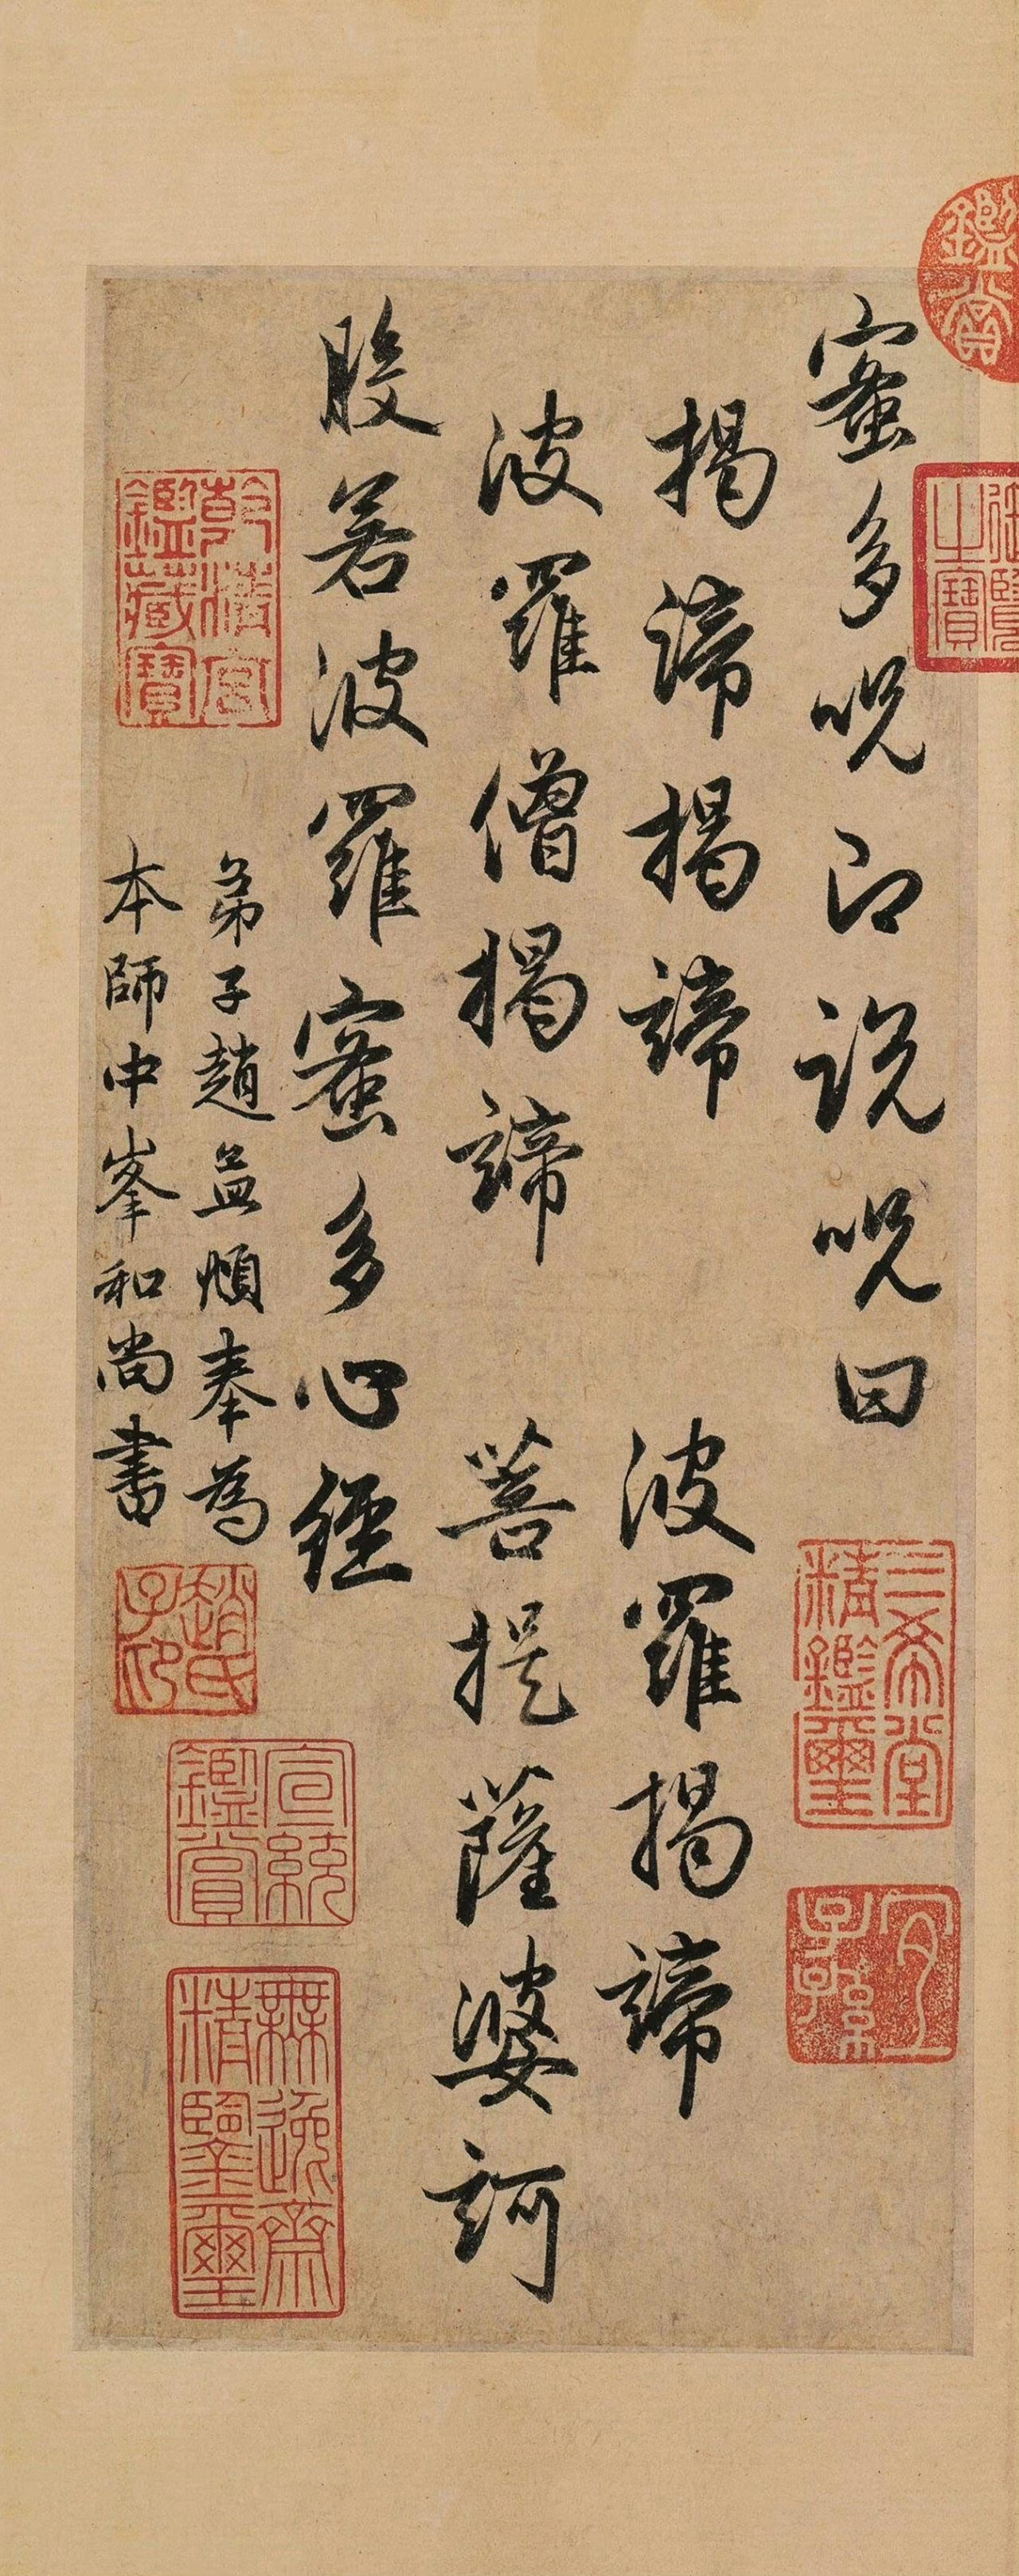 蜜多呪即説呪曰
揭諦揭諦 波羅揭諦
波羅僧揭諦 菩提薩婆訶
般若波羅蜜多心経
弟子趙孟頫奉為
本師中峯和尚書
鑑賞
御覽之寶
三希堂精鑑璽
宜子孫
乾清宮鑑藏寶
趙氏子昂
宣統鑑賞
無逸齋精鑒璽